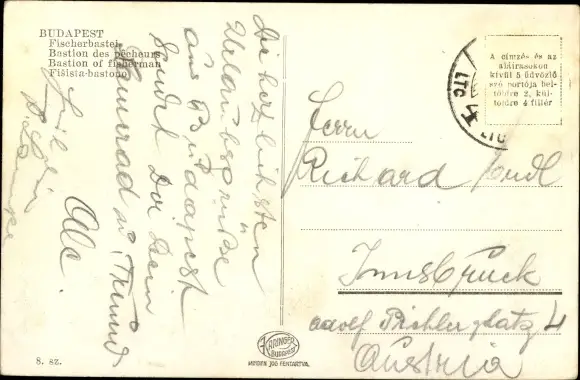 BUDAPEST
Fischerbastei
Bastion des pêcheurs
Bastion of fisherman
Fišista-bastono
Die herzlichsten
Urlaubsgrüße
aus Budapest
sendet Dir Dein
Kamerad u. Freund
A címzés és az
abtirasokon
kívül 5 üdvözlő
szó portója bel-
földre 2, kül-
földre 4 fillér
Herrn
Richard
Innsbruck
Adolf Pichlerplatz 4
Austria
BARINGER
BUDAPEST
MINDEN JOG FENTARTVA.
8. sz.